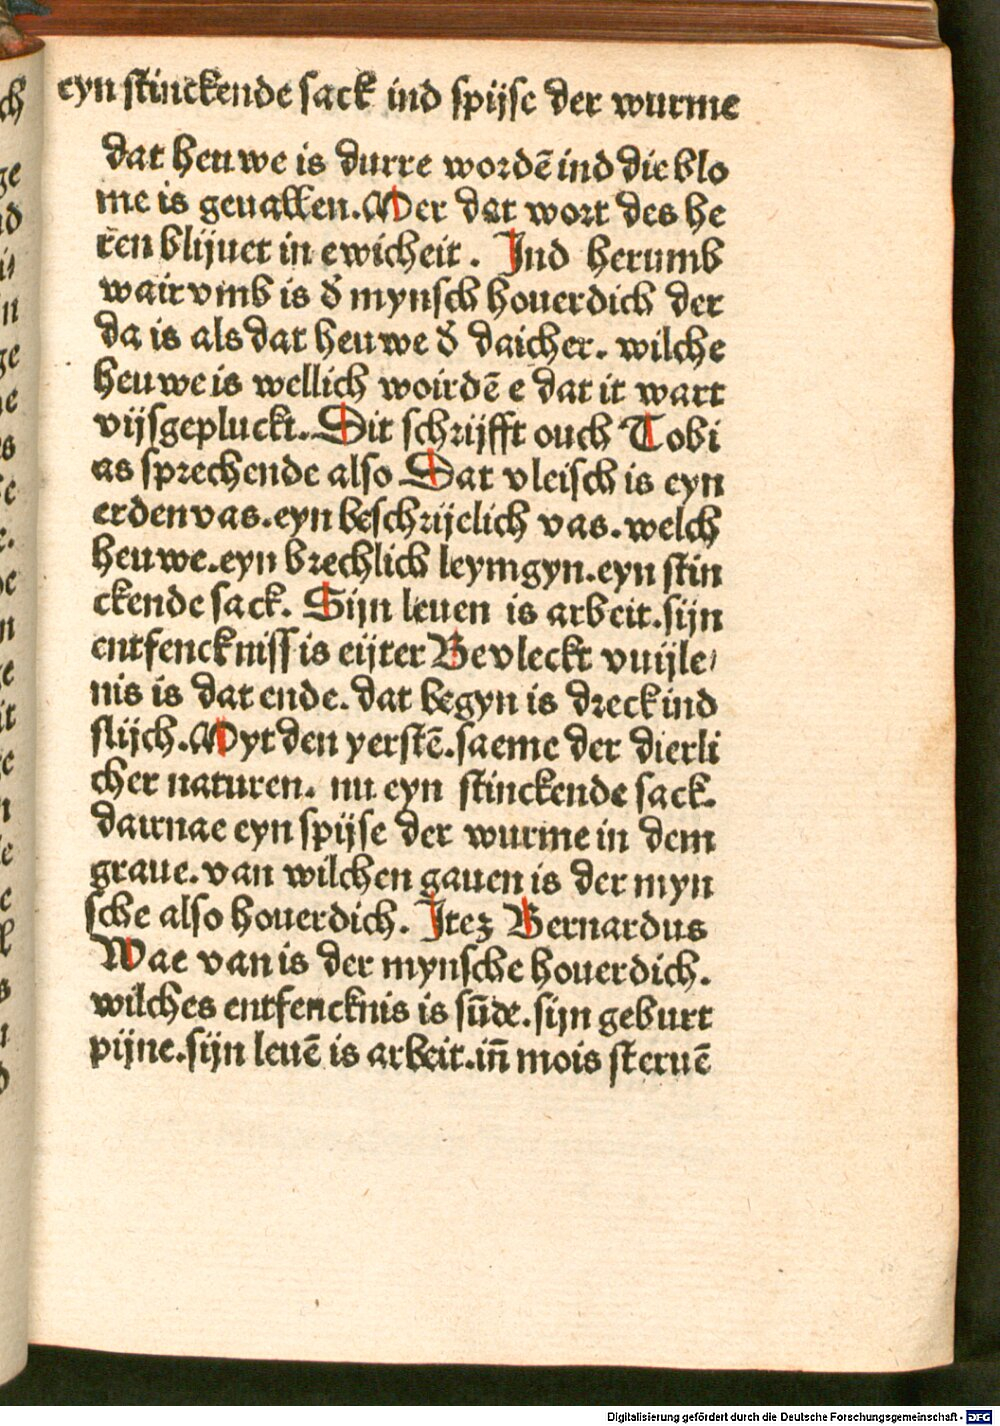 eyn stinckende sack ind spijse der wurme
dat heuwe is durre wordē ind die blo
me is geuallen. Mer dat wort des he
ren blijuet in ewicheit. Ind herumb
wairvmb is d̄ mynsch houerdich der
da is als dat heuwe d̄ daicher. wilche
heuwe is wellich woirdē e dat it wart
vijsgepluckt. Dit schrijfft ouch Tobi
as sprechende also Dat vleisch is eyn
erdenvas. eyn beschrijelich vas. welch
heuwe. eyn brechlich leymgyn. eyn stin
ckende sack. Sijn leuen is arbeit. sijn
entfenckniss is eijter Bevleckt vuijle/
nis is dat ende. dat begyn is dreck ind
slijch. Myt den yerstē. saeme der dierli
cher naturen. nu eyn stinckende sack.
dairnae eyn spijse der wurme in dem
graue. van wilchen gauen is der myn
sche also houerdich. Itez Bernardus
Wae van is der mynsche houerdich.
wilches entfencknis is sūde. sijn geburt
pijne. sijn leuē is arbeit. iñ mois steruē
Digitalisierung gefördert durch die Deutsche Forschungsgemeinschaft - DFG